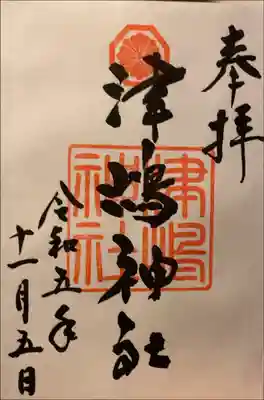 奉拝
津嶋神社
令和五年
十一月五日
津嶋神社